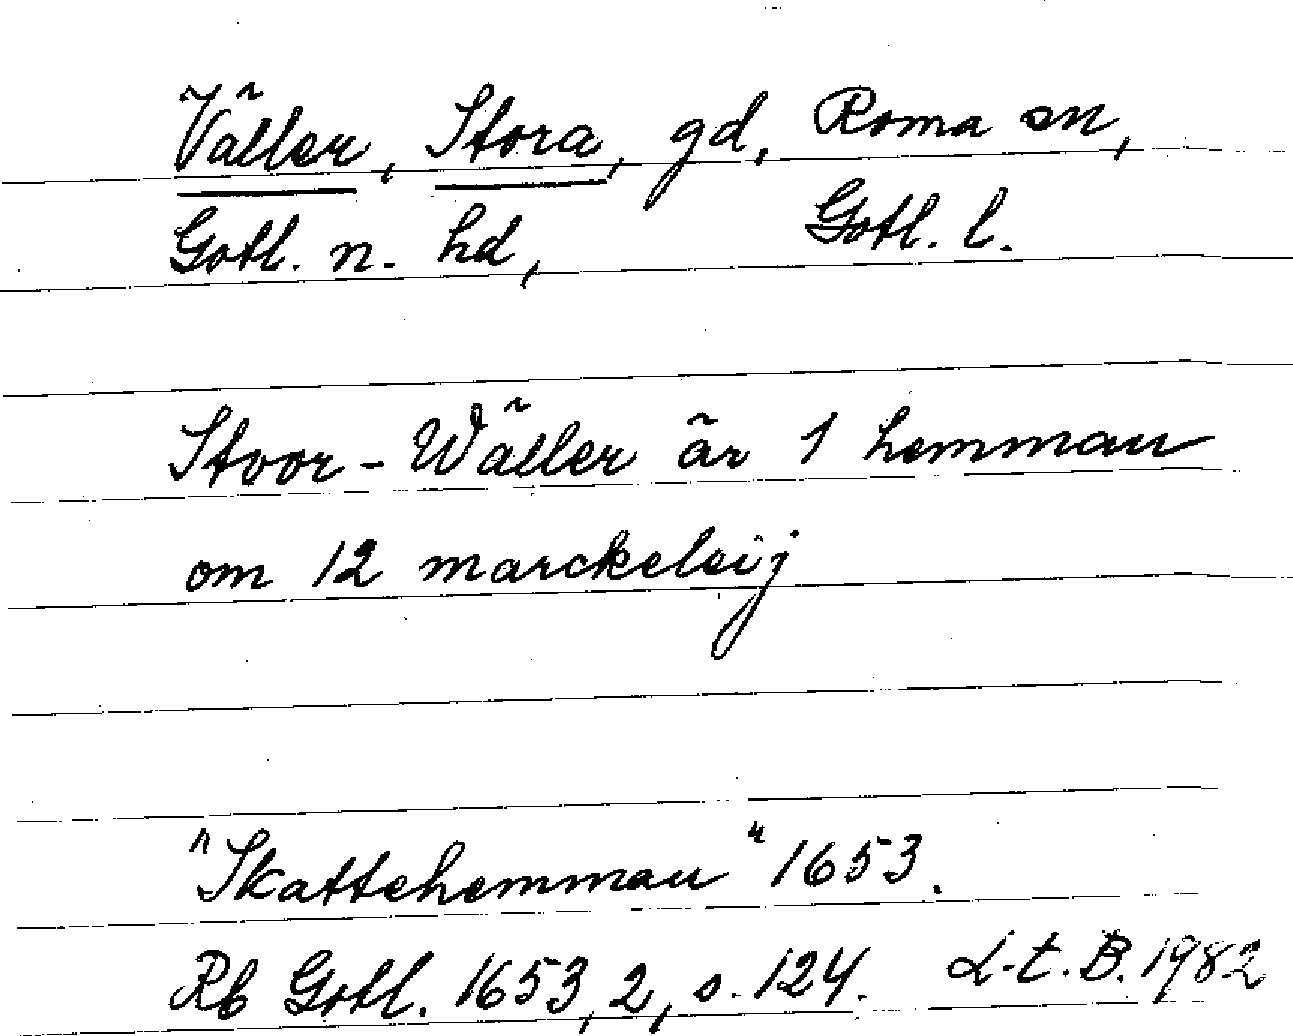 Väller, Stora, gd, Roma sn,
Gotl. n. hd, Gotl. l.
Stoor-Wäller är 1 hemman
om 12 marckeleij
"Skattehemman" 1653.
Rb Gotl. 1653, 2, s. 124. L.t.B. 1982